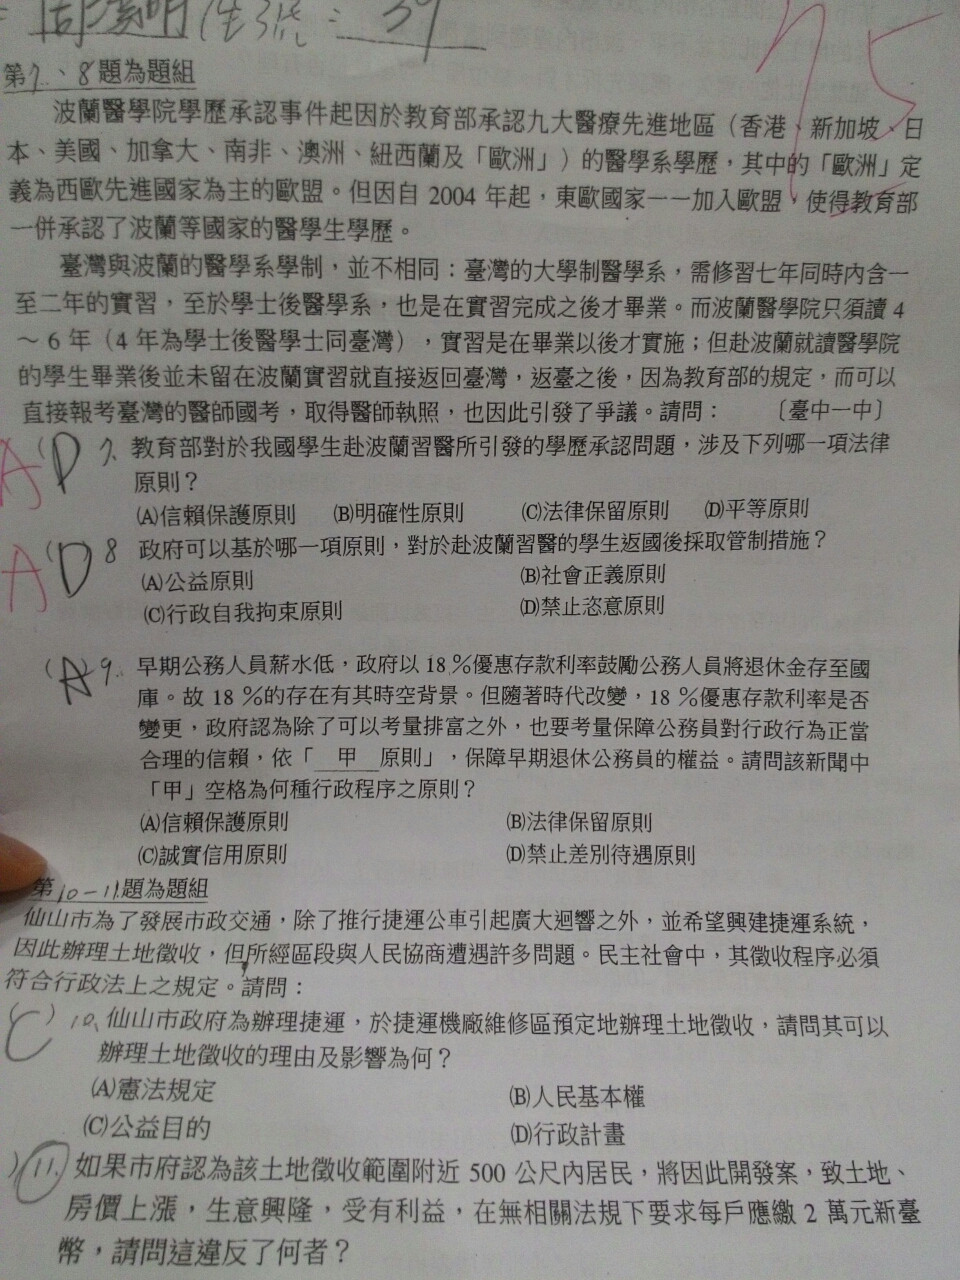 座號：39
75
第7、8題為題組
波蘭醫學院學歷承認事件起因於教育部承認九大醫療先進地區（香港、新加坡、日
本、美國、加拿大、南非、澳洲、紐西蘭及「歐洲」）的醫學系學歷，其中的「歐洲」定
義為西歐先進國家為主的歐盟。但因自 2004 年起，東歐國家一一加入歐盟，使得教育部
一併承認了波蘭等國家的醫學生學歷。
臺灣與波蘭的醫學系學制，並不相同：臺灣的大學制醫學系，需修習七年同時內含一
至二年的實習，至於學士後醫學系，也是在實習完成之後才畢業。而波蘭醫學院只須讀 4
～ 6 年（4 年為學士後醫學士同臺灣），實習是在畢業以後才實施；但赴波蘭就讀醫學院
的學生畢業後並未留在波蘭實習就直接返回臺灣，返臺之後，因為教育部的規定，而可以
直接報考臺灣的醫師國考，取得醫師執照，也因此引發了爭議。請問： 〔臺中一中〕
A (D) 7、教育部對於我國學生赴波蘭習醫所引發的學歷承認問題，涉及下列哪一項法律
原則？
(A)信賴保護原則 (B)明確性原則 (C)法律保留原則 (D)平等原則
A (D) 8 政府可以基於哪一項原則，對於赴波蘭習醫的學生返國後採取管制措施？
(A)公益原則 (B)社會正義原則
(C)行政自我拘束原則 (D)禁止恣意原則
(A) 9. 早期公務人員薪水低，政府以 18 %優惠存款利率鼓勵公務人員將退休金存至國
庫。故 18 %的存在有其時空背景。但隨著時代改變，18 %優惠存款利率是否
變更，政府認為除了可以考量排富之外，也要考量保障公務員對行政行為正當
合理的信賴，依「 甲 原則」，保障早期退休公務員的權益。請問該新聞中
「甲」空格為何種行政程序之原則？
(A)信賴保護原則 (B)法律保留原則
(C)誠實信用原則 (D)禁止差別待遇原則
第10-11題為題組
仙山市為了發展市政交通，除了推行捷運公車引起廣大迴響之外，並希望興建捷運系統，
因此辦理土地徵收，但所經區段與人民協商遭遇許多問題。民主社會中，其徵收程序必須
符合行政法上之規定。請問：
(C) 10、仙山市政府為辦理捷運，於捷運機廠維修區預定地辦理土地徵收，請問其可以
辦理土地徵收的理由及影響為何？
(A)憲法規定 (B)人民基本權
(C)公益目的 (D)行政計畫
) 11. 如果市府認為該土地徵收範圍附近 500 公尺內居民，將因此開發案，致土地、
房價上漲，生意興隆，受有利益，在無相關法規下要求每戶應繳 2 萬元新臺
幣，請問這違反了何者？